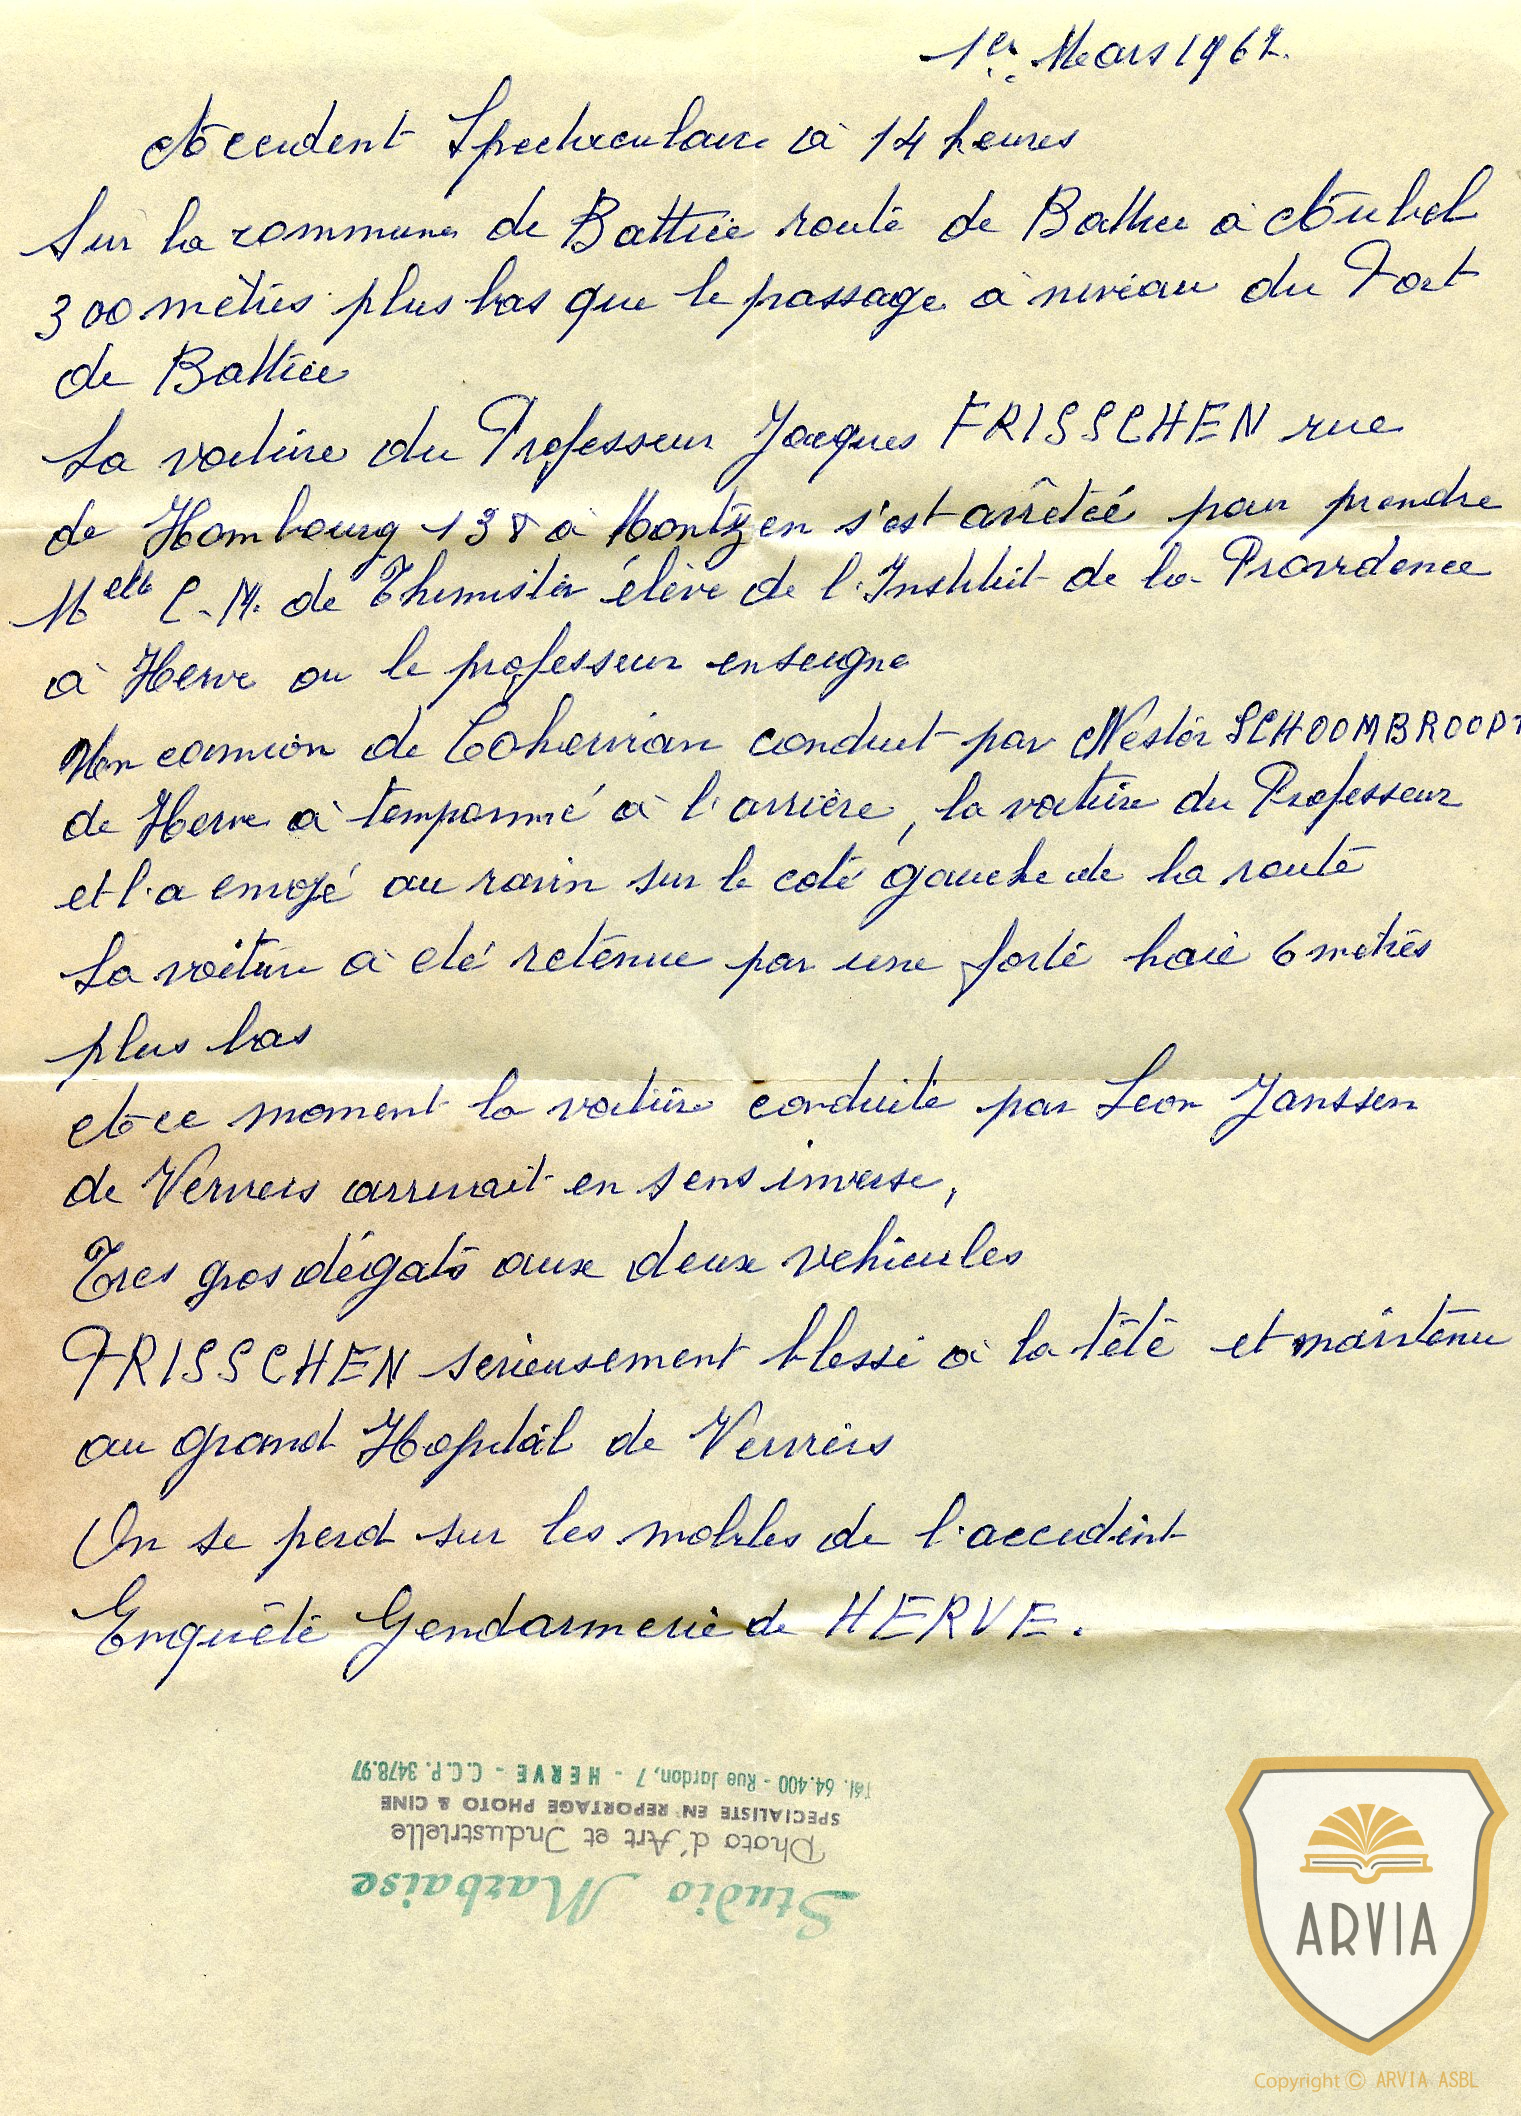 1er Mars 1962.
Accident Spectaculaire à 14 heures
Sur la commune de Battice route de Battice à Aubel
300 mètres plus bas que le passage à niveau du Fort
de Battice
La voiture du Professeur Jacques FRISSCHEN rue
de Hombourg 138 à Montzen s'est arrêtée pour prendre
Melle C.M. de Thimister élève de l'Institut de la Providence
à Herve ou le professeur enseigne
Un camion de conduit par Nestor SCHOOMBROODT
de Herve à tamponné à l'arrière, la voiture du Professeur
et l'a envoyé au ravin sur le coté gauche de la route
La voiture à eté retenue par une forte haie 6 mètres
plus bas
A ce moment la voiture conduite par Leon Janssen
de Verviers arrivait en sens inverse,
Tres gros dégats aux deux vehicules
FRISSCHEN serieusement blessé à la tête et maintenu
au grand Hopital de Verviers
On se perd sur les mobiles de l'accident
Enquête Gendarmerie de HERVE.
Studio Marbaise
Photo d'Art et Industrielle
SPECIALISTE EN REPORTAGE PHOTO & CINE
Tél. 64.400 - Rue Jardon, 7 - HERVE - C.C.P. 3478.97
ARVIA
Copyright © ARVIA ASBL